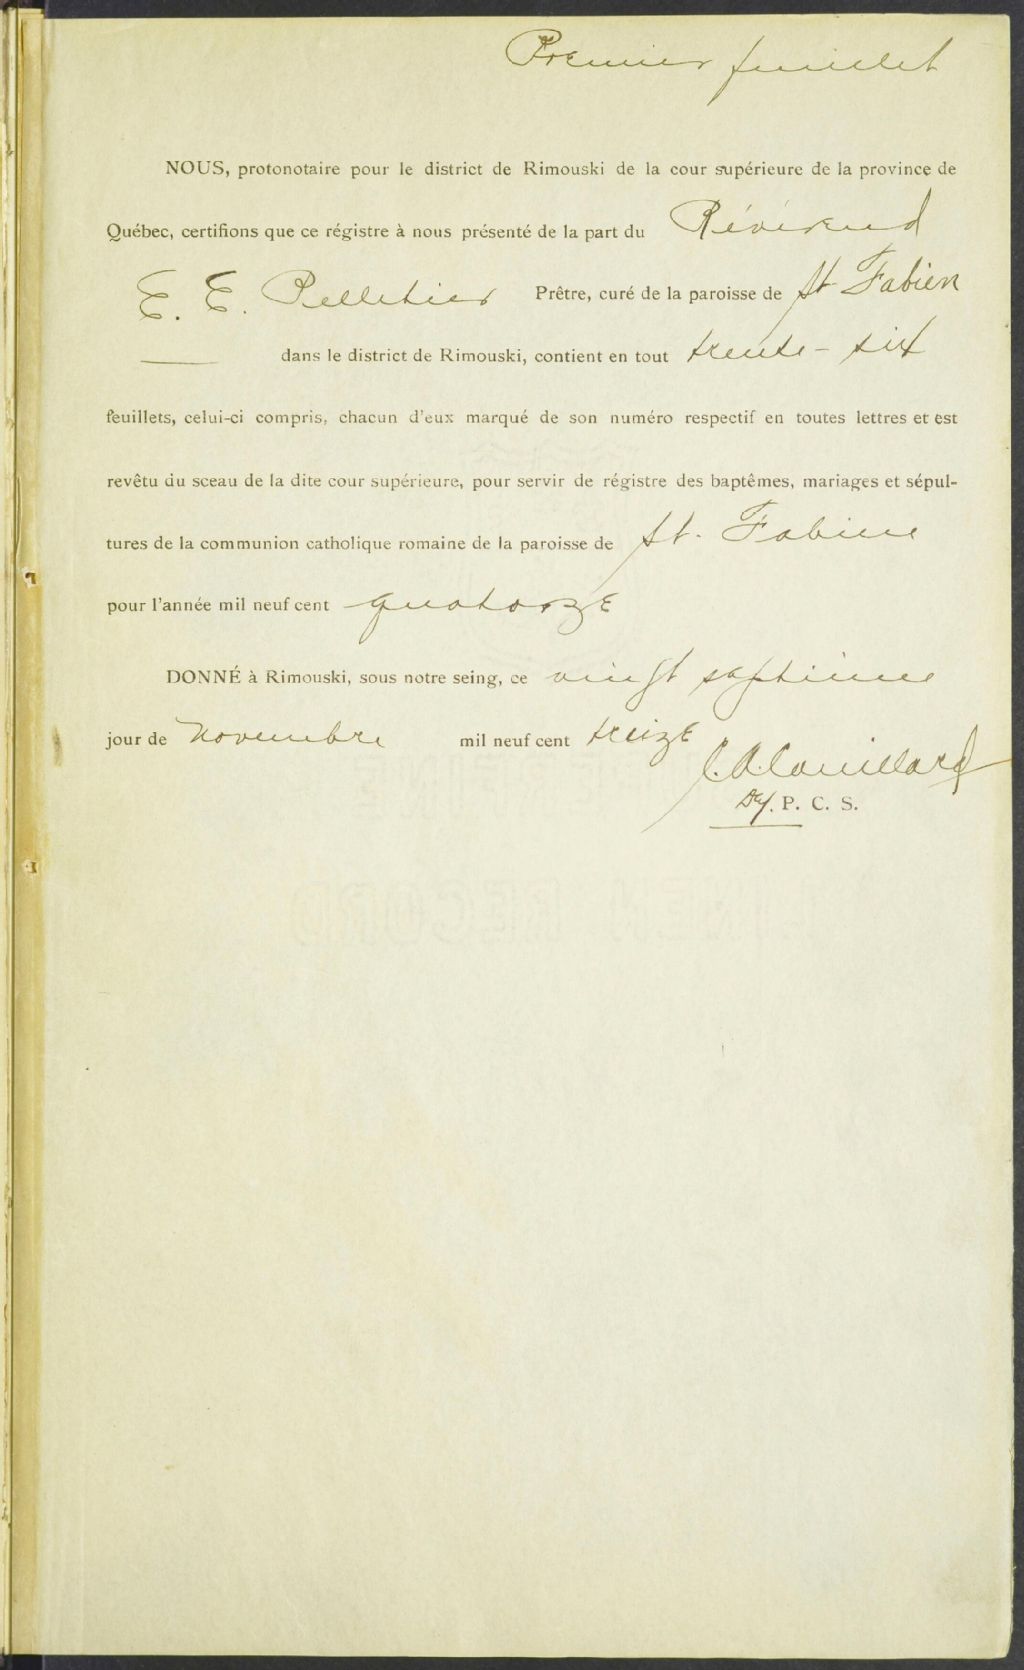 Premier feuillet
NOUS, protonotaire pour le district de Rimouski de la cour supérieure de la province de
Québec, certifions que ce régistre à nous présenté de la part du Révérend
E. E. Pelletier Prêtre, curé de la paroisse de St Fabien
dans le district de Rimouski, contient en tout trente-six
feuillets, celui-ci compris, chacun d'eux marqué de son numéro respectif en toutes lettres et est
revêtu du sceau de la dite cour supérieure, pour servir de régistre des baptêmes, mariages et sépul-
tures de la communion catholique romaine de la paroisse de St. Fabien
pour l'année mil neuf cent quatorze
DONNÉ à Rimouski, sous notre seing, ce vingt septième
jour de Novembre mil neuf cent treize
C. A. Couillard
Dep. P. C. S.
LINEN RECORD